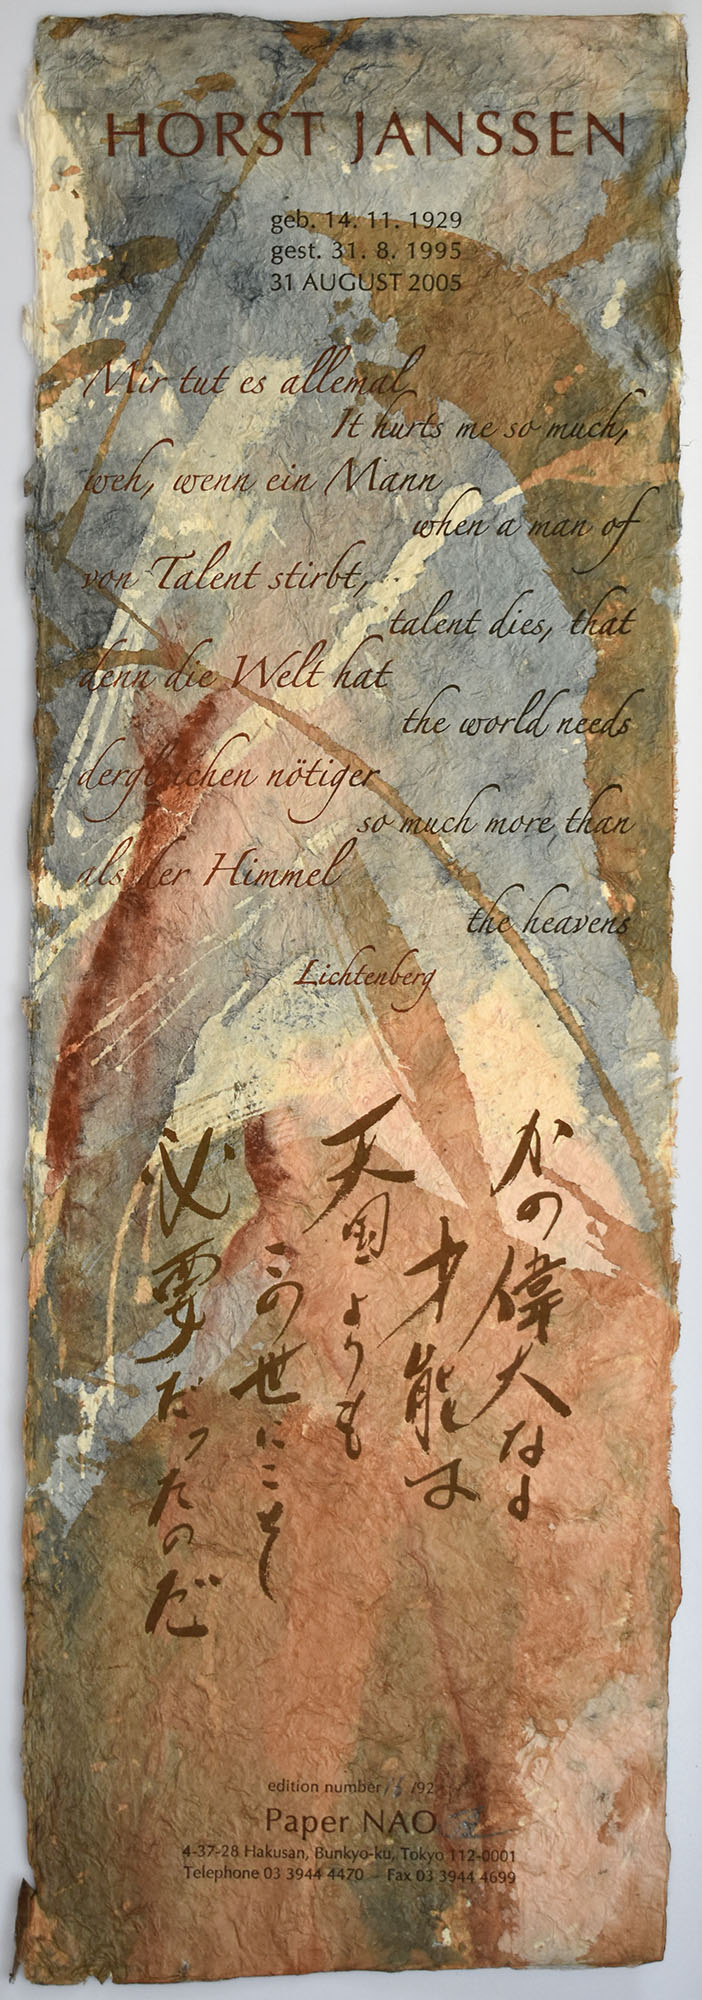 HORST JANSSEN
geb. 14. 11. 1929
gest. 31. 8. 1995
31 AUGUST 2005
Mir tut es allemal
It hurts me so much,
weh, wenn ein Mann
when a man of
von Talent stirbt,
talent dies, that
denn die Welt hat
the world needs
dergleichen nötiger
so much more than
als der Himmel
the heavens
Lichtenberg
かの偉大なる
才能は
天国よりも
この世にこそ
必要だったのだ
edition number /92
Paper NAO
4-37-28 Hakusan, Bunkyo-ku, Tokyo 112-0001
Telephone 03 3944 4470 Fax 03 3944 4699